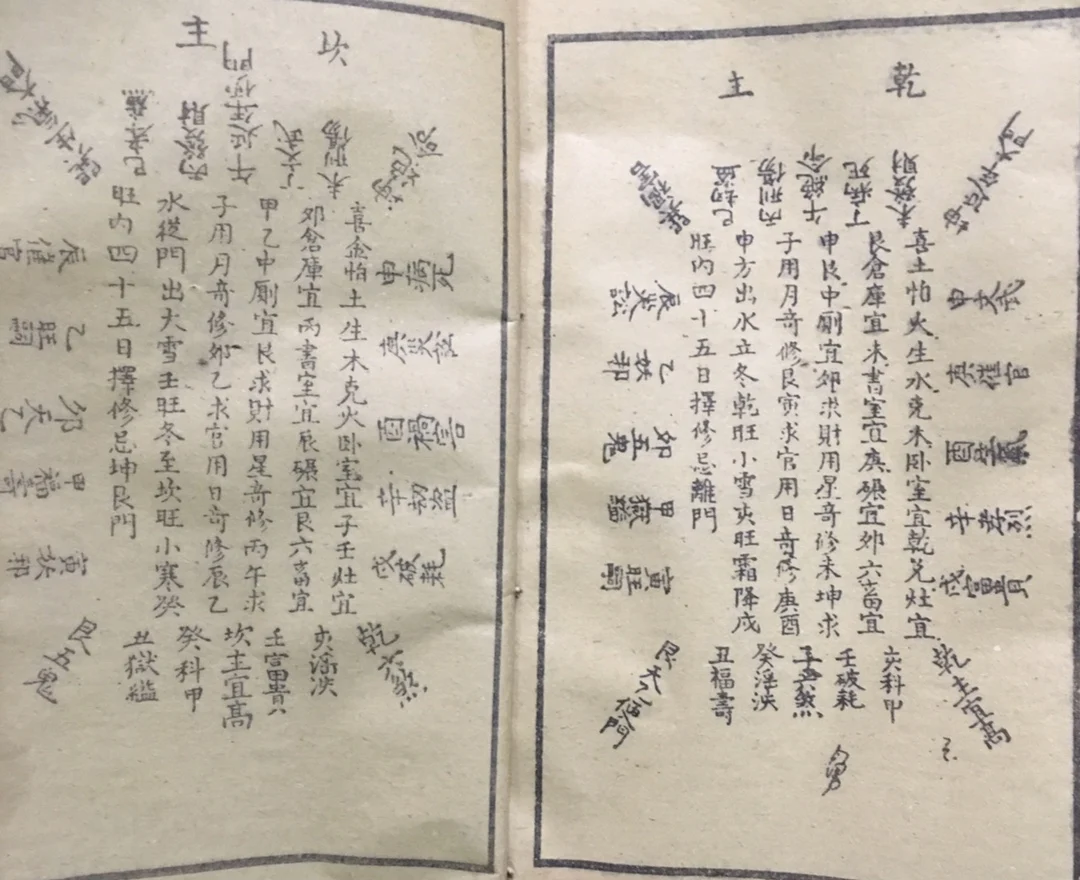 乾
主
喜土怕火生水克木卧室宜乾兌灶宜
艮倉庫宜未書室宜庚碾宜卯六畜宜
申艮中厠宜卯求財用星奇修未坤求
子用月奇修艮寅求官用日奇修庚酉
申方出水立冬乾旺小雪亥旺霜降戌
旺內四十五日擇修忌離門
申文武
庚催官
酉生氣
戌富貴
乾主宜高
亥科甲
壬破耗
癸淫泆
丑福壽
寅旺嗣
甲獄
卯五鬼
乙妖邪
辰災訟
丙刑傷
坎
主
喜金怕土生木克火卧室宜子壬灶宜
卯倉庫宜丙書室宜辰碾宜艮六畜宜
甲乙中厠宜艮求財用星奇修丙午求
子用月奇修卯乙求官用日奇修辰乙
水從門出大雪壬旺冬至坎旺小寒癸
旺內四十五日擇修忌坤艮門
申病死
庚災訟
酉禍害
辛劫盜
戌破耗
乾六煞
亥淫泆
壬富貴
坎主宜高
癸科甲
丑獄
艮五鬼
寅妖邪
甲福壽
卯天乙
乙旺嗣
辰催官
丙發財
丁文武
未刑傷